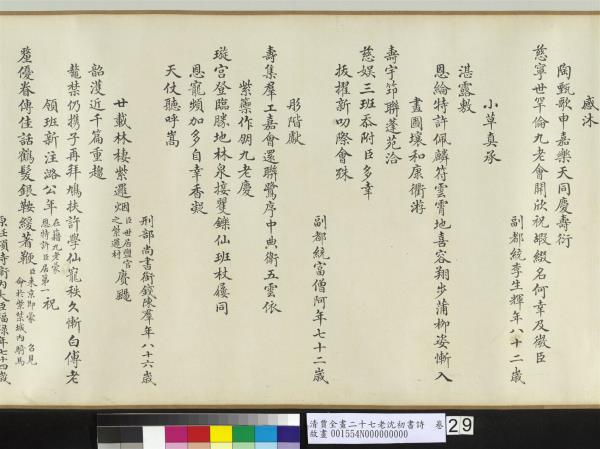 感沐
陶甄歌申嘉樂天同慶壽衍
慈寧世罕倫九老會開欣祝嘏綴名何幸及微臣
副都統李生輝年八十二歲
小草真承
湛露敷
恩綸特許佩麟符雲霄地喜容翔步蒲柳姿慚入
畫圖壤和康衢游
壽宇節聯蓬苑洽
慈娛三班忝附臣多幸
拔擢新叨際會殊
副都統富僧阿年七十二歲
彤階獻
壽集羣工嘉會還聯鷺序中典衛五雲依
紫籞作朋九老慶
璇宮登臨勝地林泉接矍鑠仙班杖屨同
恩寵頻加多自幸香凝
天仗聽呼嵩
刑部尚書銜錢陳羣年八十六歲
廿載林棲紫邏烟臣世居鹽官之紫邏村賡颺
韶濩近千篇重趨
鼇禁仍攜子再拜鳩扶許學仙寵秩久慚白傅老
領班新注潞公年在籍九老蒙恩特許臣居第一祝
釐優眷傳佳話鶴髮銀鞍緩著鞭臣來京即蒙召見命於紫禁城內騎馬
清賈全畫二十七老沈初書詩 卷
故畫 001554N000000000
29